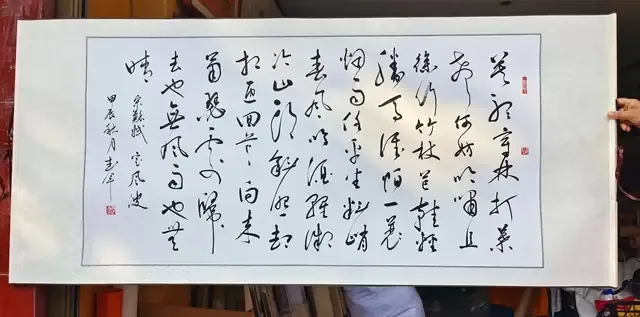 莫听穿林打葉
声何妨吟啸且
徐行竹杖芒鞋轻
胜马谁怕一蓑
烟雨任平生料峭
春风吹酒醒微
冷山头斜照却
相迎回首向来
萧瑟处归
去也無风雨也无
晴
宋苏轼 定风波
甲辰秋月